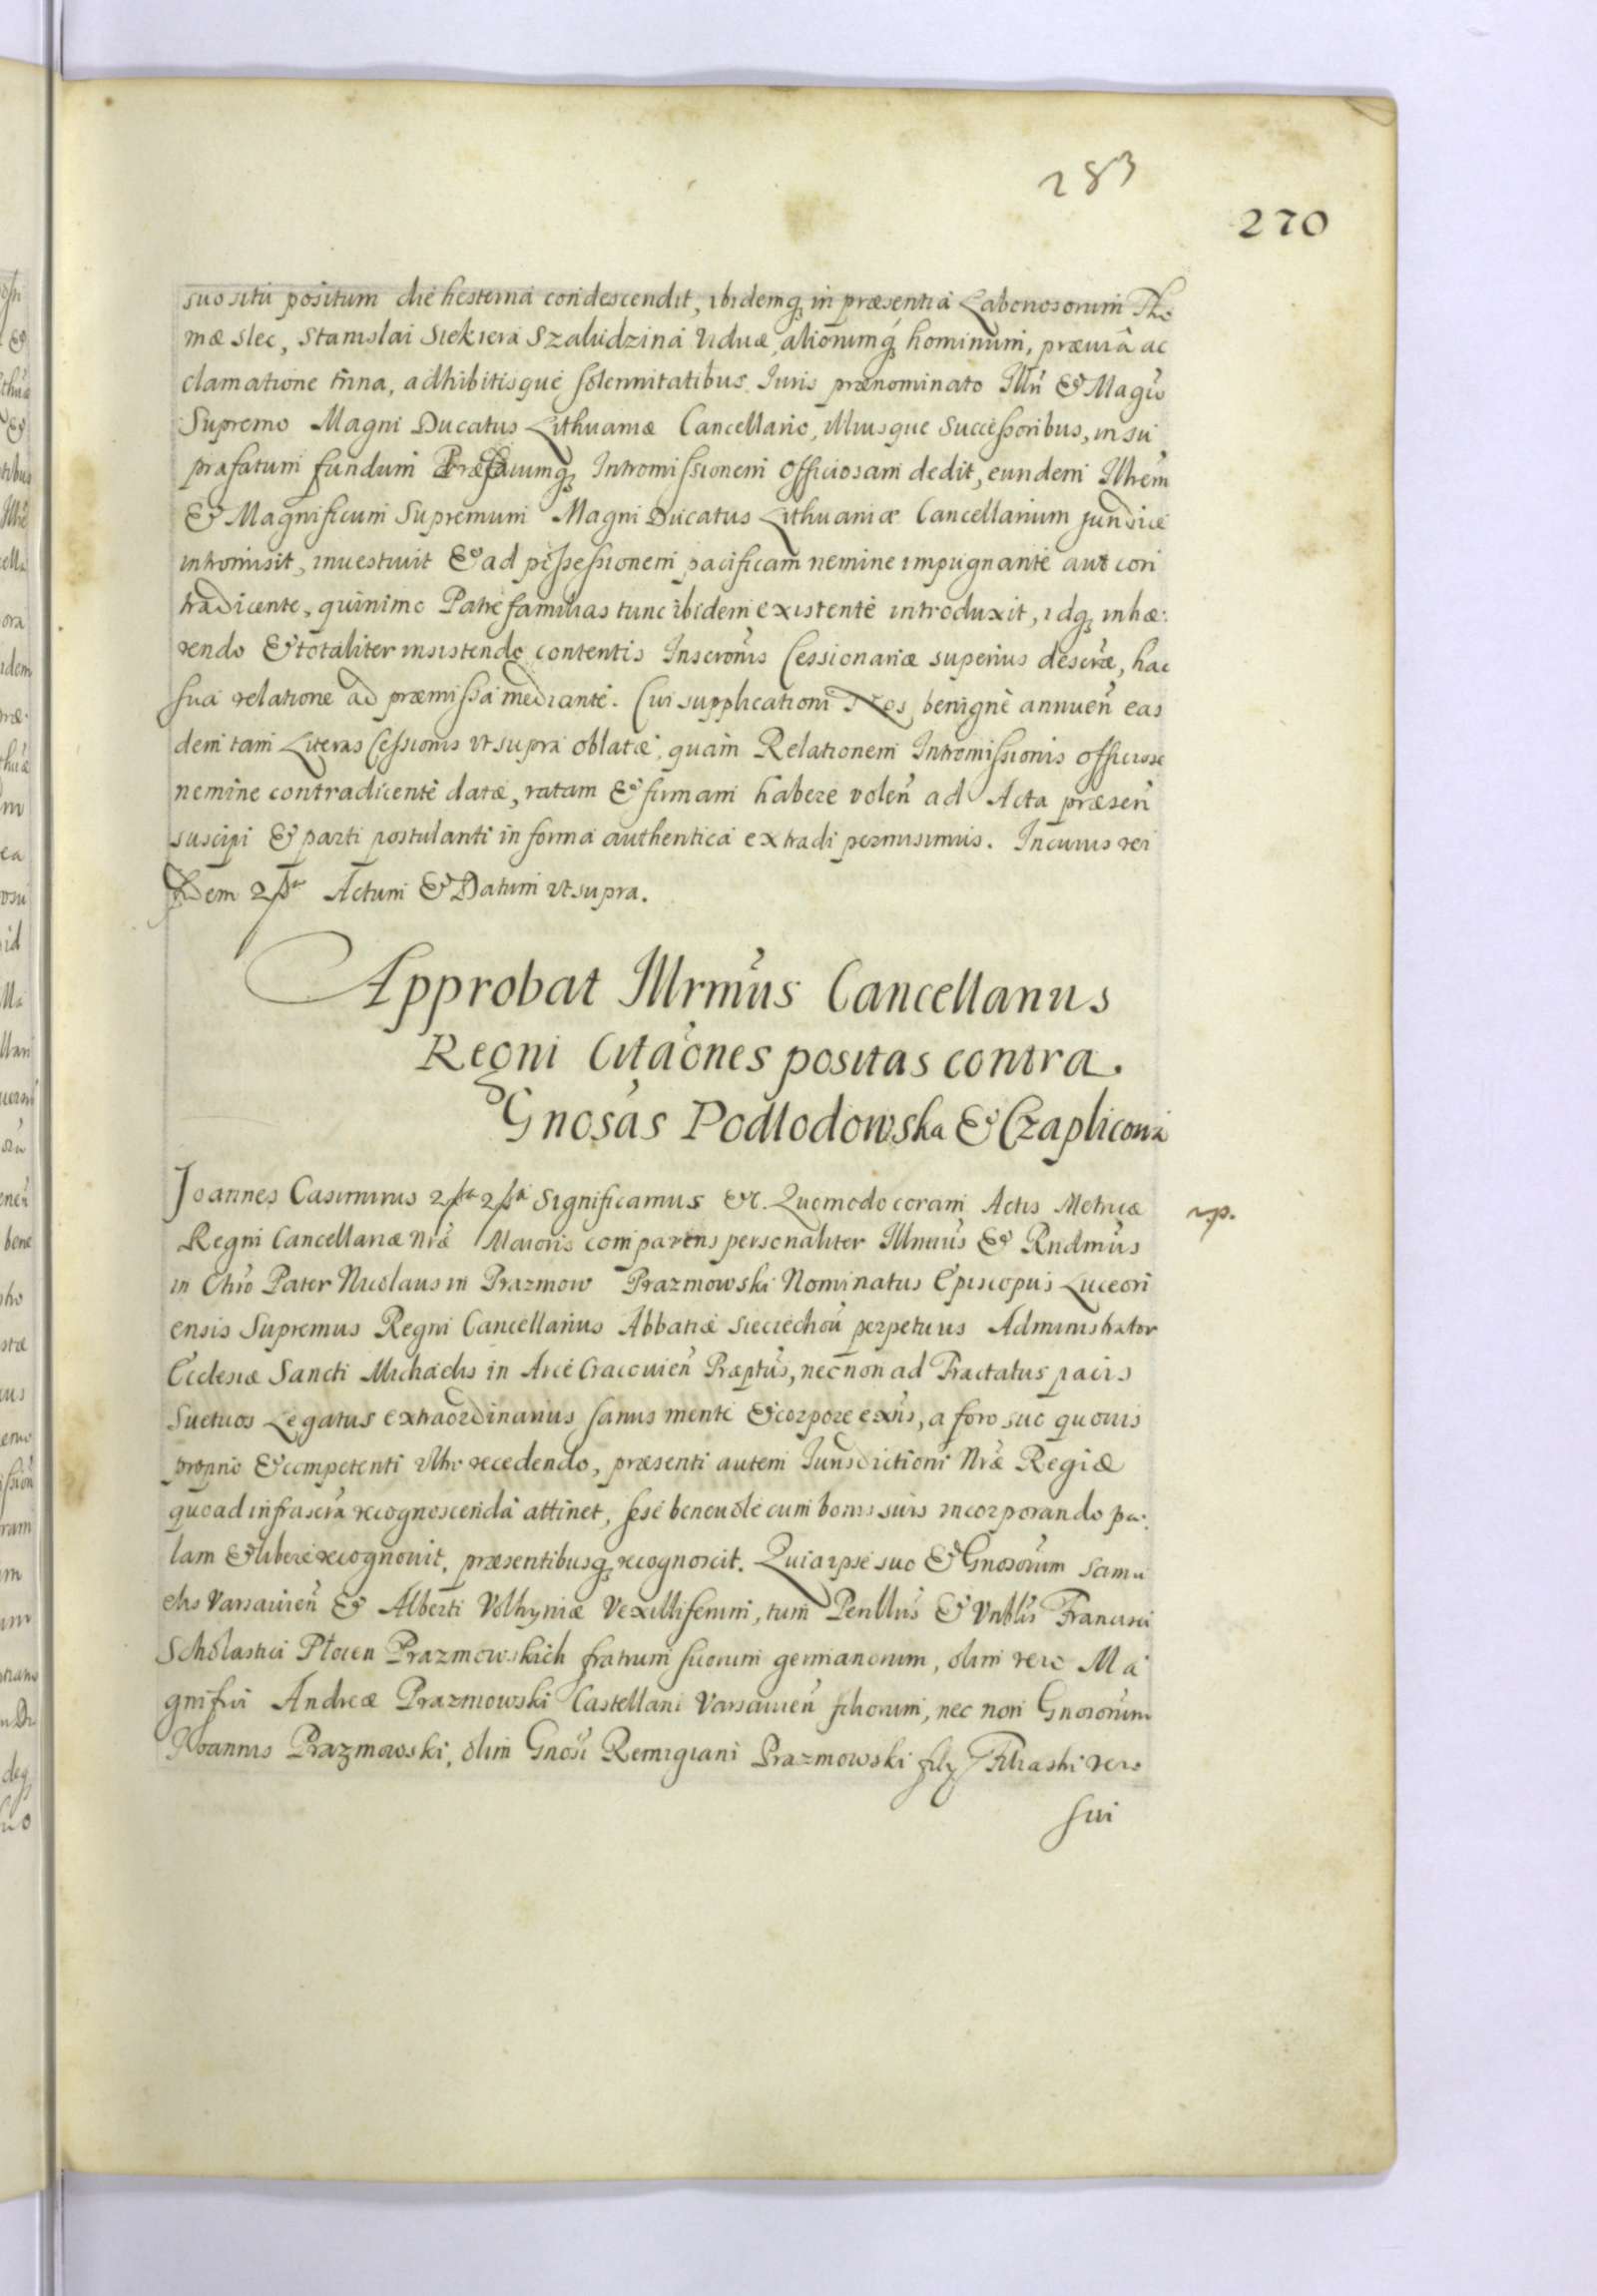 283
270
suo situ positum die hesterna condescendit, ibidemq; in præsentia Laboriosorum Tho
mæ slec, Stanislai Siekiera Szaludzina Viduæ, aliorumq; hominum, præuiâ ac
clamatione trina, adhibitisque solennitatibus Iuris prænominato Illri & Magco
Supremo Magni Ducatus Lithuaniæ Cancellario, Illiusque Successoribus, in su
prafatum fundum Intromissionem officiosam dedit, eundem Illrem
& Magnificum Supremum Magni Ducatus Lithuaniæ Cancellarium juridicè
intromisit, inuestiuit & ad possessionem pacificam nemine impugnante aut con
tradicente, quinimo Patrefamilias tunc ibidem existente introduxit, idq; inhæ:
rendo & totaliter insistendo contentis Inscronis Cessionariæ superius descræ, hac
sua relatione ad præmissa mediante. Cui supplicationi Nos benignè annuen eas
dem tam Literas Cessionis vt supra oblatæ, quam Relationem Intromissionis officiosæ
nemine contradicente datæ, ratam & firmam habere volen ad Acta præsen
suscipi & parti postulanti in forma authentica extradi permisimus. In cuius rei
fidem Actum & Datum vt supra.
Approbat Illrmus Cancellarius
Regni Citaones positas contra
Gnosas Podlodowska & Czaplicowa
Joannes Casimirus Significamus &c. Quomodo coram Actis Metricæ
np.
Regni Cancellariæ Nræ Maioris comparens personaliter Illmus & Rndmus
in Chro Pater Nicolaus in Prazmow Prazmowski Nominatus Episcopus Luceori
ensis Supremus Regni Cancellarius Abbatiæ Sieciechou perpetuus Administrator
Ecclesiæ Sancti Michaelis in Arce Cracouien Præptus, nec non ad Tractatus pacis
Sueticos Legatus extraordinarius sanus mente & corpore exns, a foro suo quouis
proprio & competenti vltro recedendo, præsenti autem Iurisdictioni Nræ Regiæ
quoad infrascra recognoscenda attinet, sese beneuole cum bonis suis incorporando pa:
lam & libere recognouit, præsentibusq; recognoscit. Quia ipse suo & Gnosorum Samu
elis Varsauien & Alberti Volhyniæ Vexilliferum, tum Perillus & Vnblis Francisci
Scholastici Plocen Prazmowskich fratrum suorum germanorum, olim vero Ma
gnifici Andreæ Prazmowski Castellani Varsauien filiorum, nec non Gnosorum
Joannis Prazmowski, olim Gnosi Remigiani Prazmowski filij Filiastri vero
sui